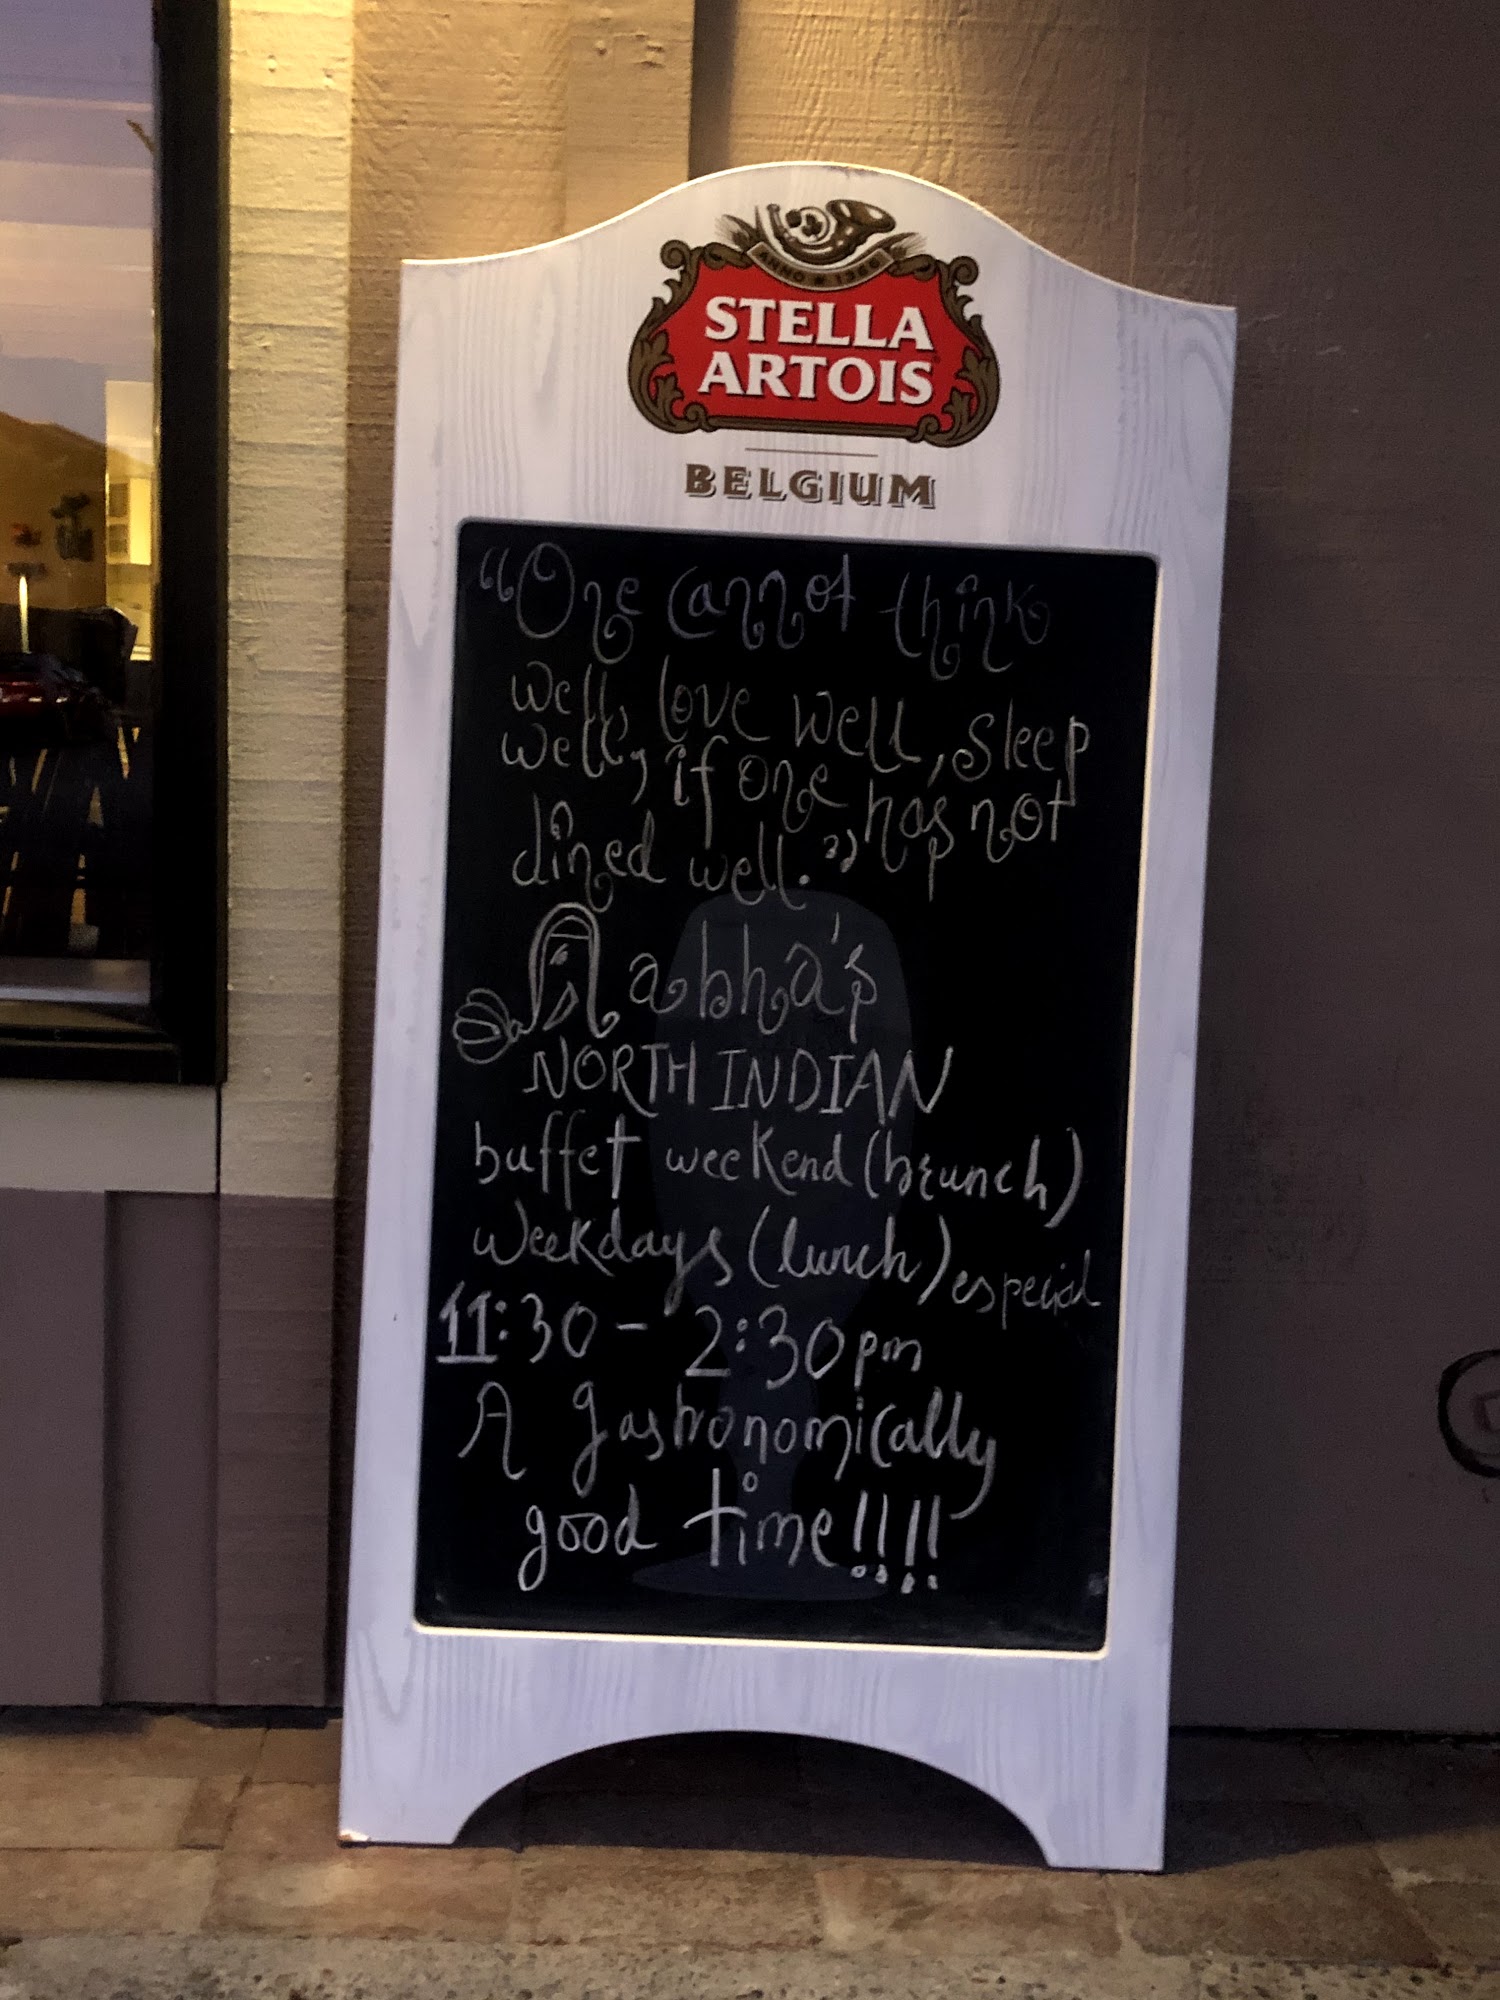 ANNO 1366
STELLA
ARTOIS
BELGIUM
“One cannot think
well, love well, sleep
well, if one has not
dined well.”
Aabha's
NORTH INDIAN
buffet weekend (brunch)
Weekdays (lunch) especial
11:30 - 2:30pm
A gastronomically
good time!!!!